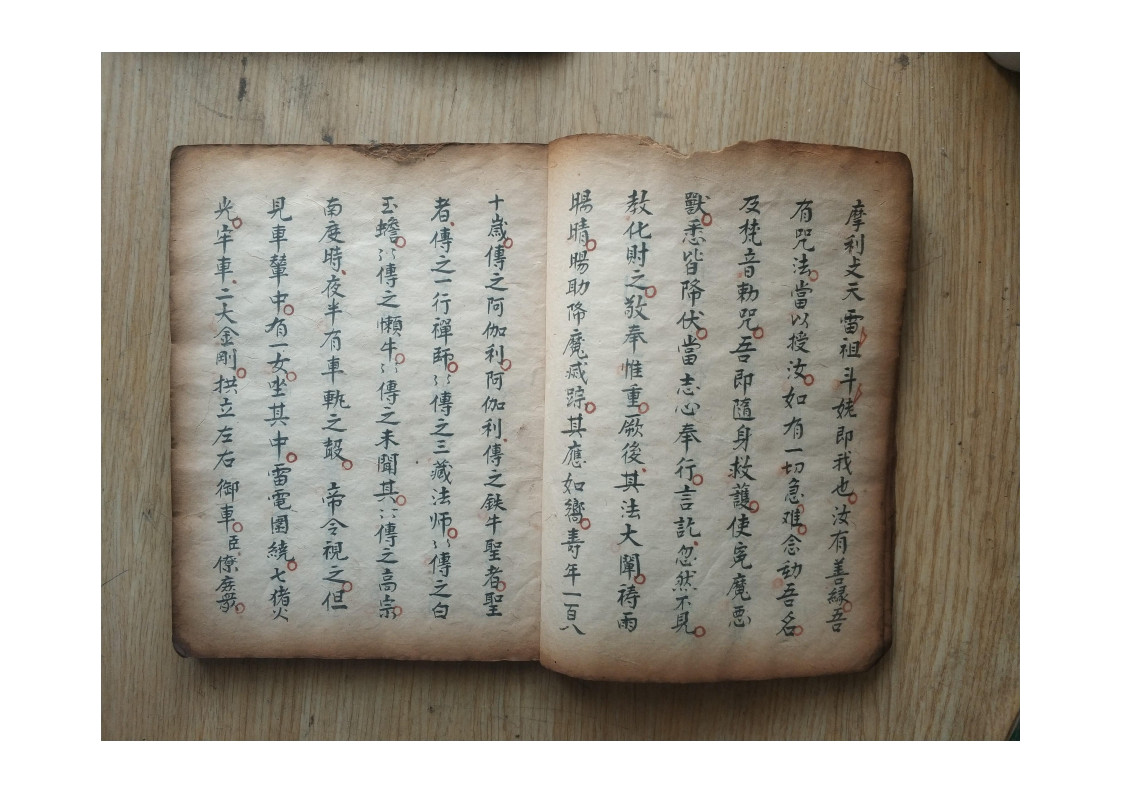 摩利攴天雷祖斗姥即我也汝有善緣吾
有咒法當以授汝如有一切急难念動吾名
及梵音勅咒吾即隨身救護使寃魔惡
獸悉皆降伏當志心奉行言訖忽然不見
教化財之敬奉惟重厥後其法大闡祷雨
暘晴暘助降魔滅踪其應如嚮寿年一百八
十歲傳之阿伽利阿伽利傳之鉄牛聖者聖
者傳之一行禪師〻傳之三藏法师〻傳之白
玉蟾〻〻傳之懶牛〻〻傳之未聞其〻〻傳之高宗
南度時夜半有車軌之声帝令視之但
見車輦中有一女坐其中雷電圍繞七猪火
光牢車二大金剛拱立左右御車臣僚庶眾